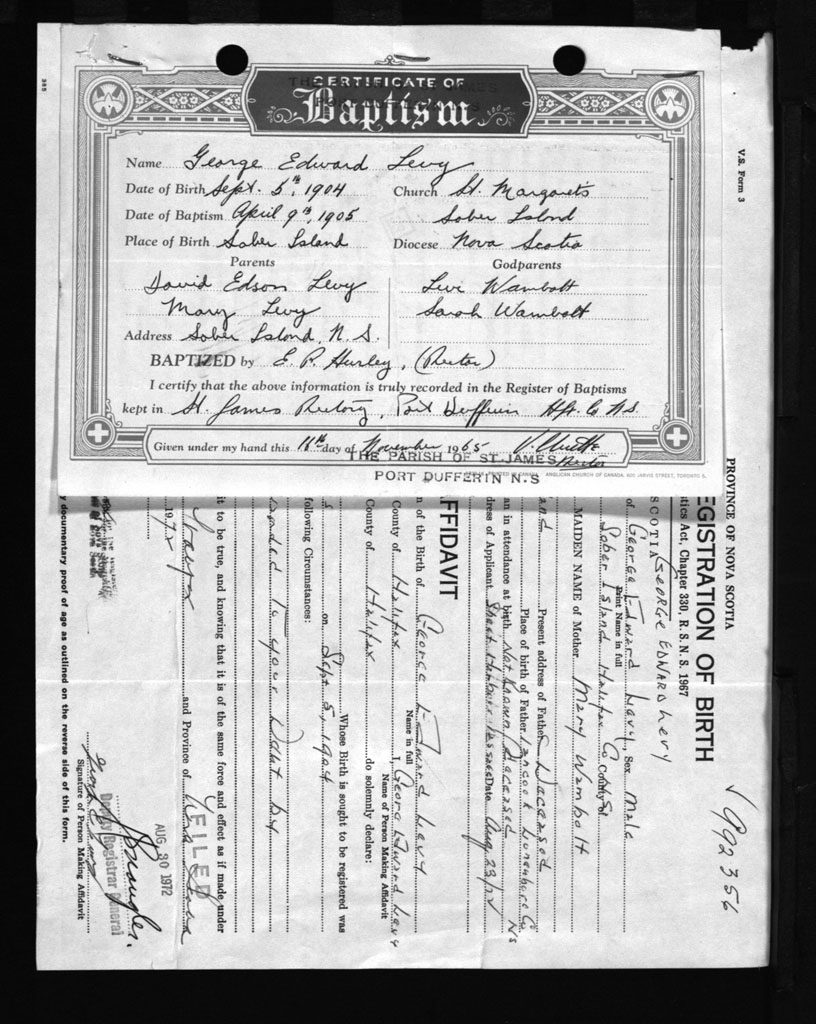 CERTIFICATE OF
Baptism
Name George Edward Levy
Date of Birth Sept. 5th, 1904 Church St. Margaret's
Date of Baptism April 9th, 1905 Sober Island
Place of Birth Sober Island Diocese Nova Scotia
Parents Godparents
David Edson Levy Levi Wambolt
Mary Levy Sarah Wambolt
Address Sober Island, N. S.
BAPTIZED by E. P. Hurley, (Rector)
I certify that the above information is truly recorded in the Register of Baptisms
kept in St. James Rectory, Port Dufferin Hfx. Co N.S.
Given under my hand this 16th day of November 1965
Rector
THE PARISH OF ST. JAMES
PORT DUFFERIN N.S
ANGLICAN CHURCH OF CANADA, 600 JARVIS STREET, TORONTO 5.
V.S. Form 3
992356
PROVINCE OF NOVA SCOTIA
EGISTRATION OF BIRTH
tics Act, Chapter 330, R. S. N. S. 1967
SCOTIA GEORGE EDWARD Levy
of George Edward Levy, Sex Male
Print Name in full
Sober Island Halifax Co
MAIDEN NAME of Mother Mary Wambolt
Present address of Father Deceased
Place of birth of Father Tancook Lunenburg Co. NS
an in attendance at birth Not Known Deceased
dress of Applicant Date Aug 23/72
FFIDAVIT
n of the Birth of George Edward Levy
Name in full
County of Halifax I, George Edward Levy
Name of Person Making Affidavit
County of Halifax do solemnly declare:
Whose Birth is sought to be registered was
on Sept 5, 1904
following Circumstances:
it to be true, and knowing that it is of the same force and effect as if made under
and Province of Nova Scotia
1972
FILED
AUG 30 1972
Deputy Registrar General
Signature of Person Making Affidavit
y documentary proof of age as outlined on the reverse side of this form.